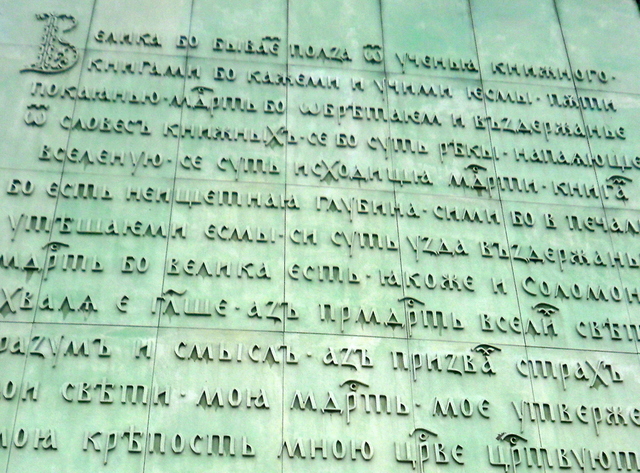 Велика бо бываѥ҃ полза ѿ ученьꙗ книжного·
книгами бо кажеми и учими ѥсмы· пѫти
покаꙗнью· мд҃рть бо ѡбрѣтаем и въздержанье
ѿ словесъ книжныхъ· се бо суть рѣкы· напаꙗюще
вселеную· се суть исходища мд҃рти· книга҃
бо есть неищетнаꙗ глубина· сими бо в печал
утѣшаюми есмы· си суть узда въздержань
мд҃рть бо велика есть· ꙗкоже и Соломон
хвалѧ е гл҃ше· азъ прмд҃рть вселі҃ свѣт
разумъ и смыслъ· азъ призва҃ страхъ
мои свѣти· моꙗ мдр҃ть· мое утверже
моꙗ крѣпость мною цр҃ве цр҃твуют